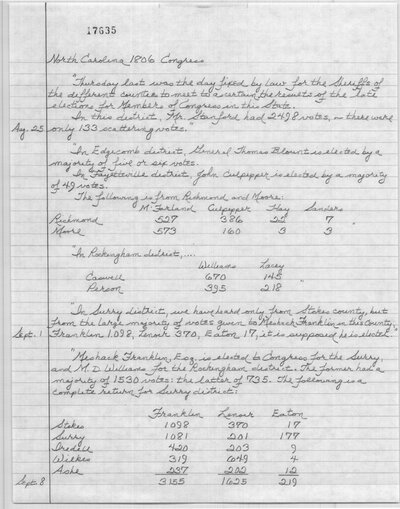 17635
North Carolina 1806 Congress
"Thursday last was the day fixed by law for the Sheriffs of
the different counties to meet to ascertain the results of the late
elections for Members of Congress in this State.
In this district, Mr. Stanford had 2498 votes, — there were
Aug. 25 only 133 scattering votes."
"In Edgecomb district, General Thomas Blount is elected by a
majority of five or six votes.
In Fayetteville district, John Culpepper is elected by a majority
of 49 votes.
The following is from Richmond and Moore:
McFarland Culpepper Hay Sanders
Richmond 527 386 22 7
Moore 573 160 3 3
"In Rockingham district, ....
Williams Lacey
Caswell 670 145
Person 395 218 "
"In Surry district, we have heard only from Stokes county, but
from the large majority of votes given to Meshack Franklin in this County,
Sept. 1 Franklin 1098, Lenoir 370, Eaton 17, it is supposed he is elected."
"Meshack Franklin, Esq. is elected to Congress for the Surry,
and M. D. Williams for the Rockingham district. The former had a
majority of 1530 votes: the latter of 735. The following is a
complete return for Surry district:
Franklin Lenoir Eaton
Stokes 1098 370 17
Surry 1081 201 177
Iredell 420 203 9
Wilkes 319 649 4
Ashe 237 202 12
Sept. 8 3155 1625 219